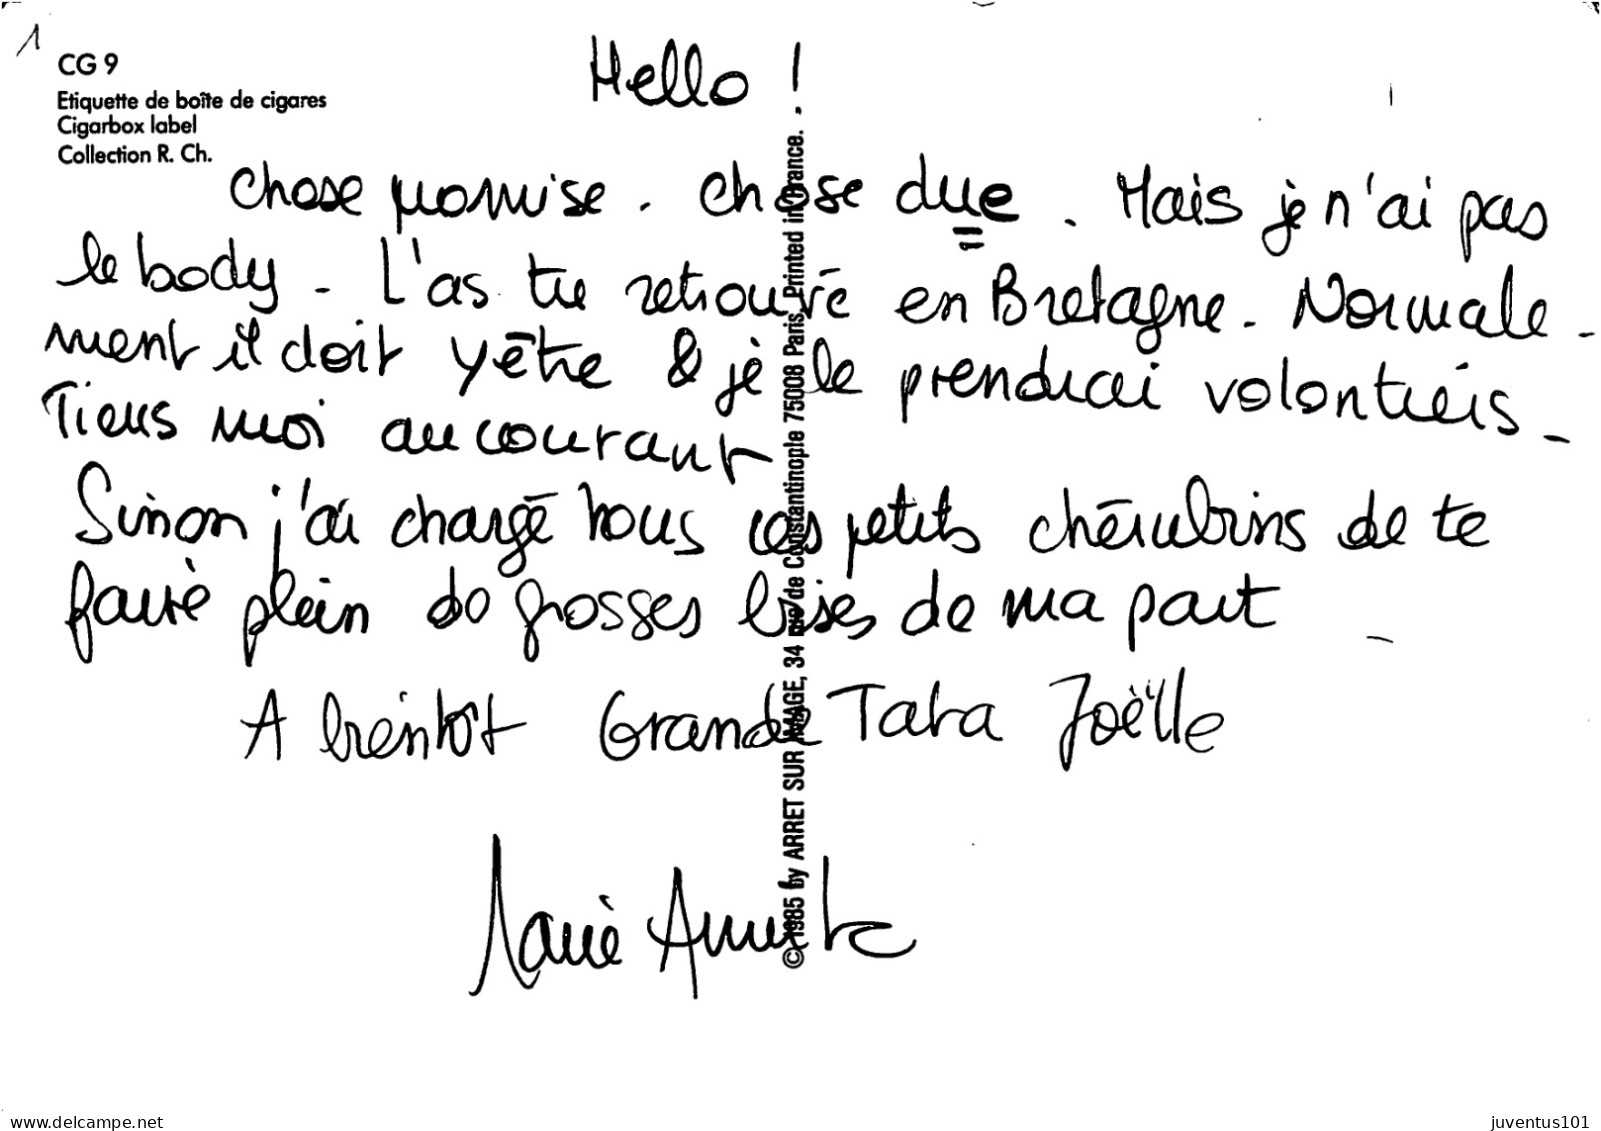 1
CG 9
Etiquette de boîte de cigares
Cigarbox label
Collection R. Ch.
Hello !
Chose promise. Chose due. Mais je n'ai pas
le body - L'as tu retrouvé en Bretagne - Normale -
ment il doit y être & je le prendrai volontiers -
Tiens moi au courant
Sinon j'ai chargé nous ces petits chérubins de te
faire plein de grosses bises de ma part -
A bientôt Grande Tata Joëlle
Marie
© 1985 by ARRET SUR IMAGE, 34 rue de Constantinople 75008 Paris. Printed in France.
www.delcampe.net
juventus101